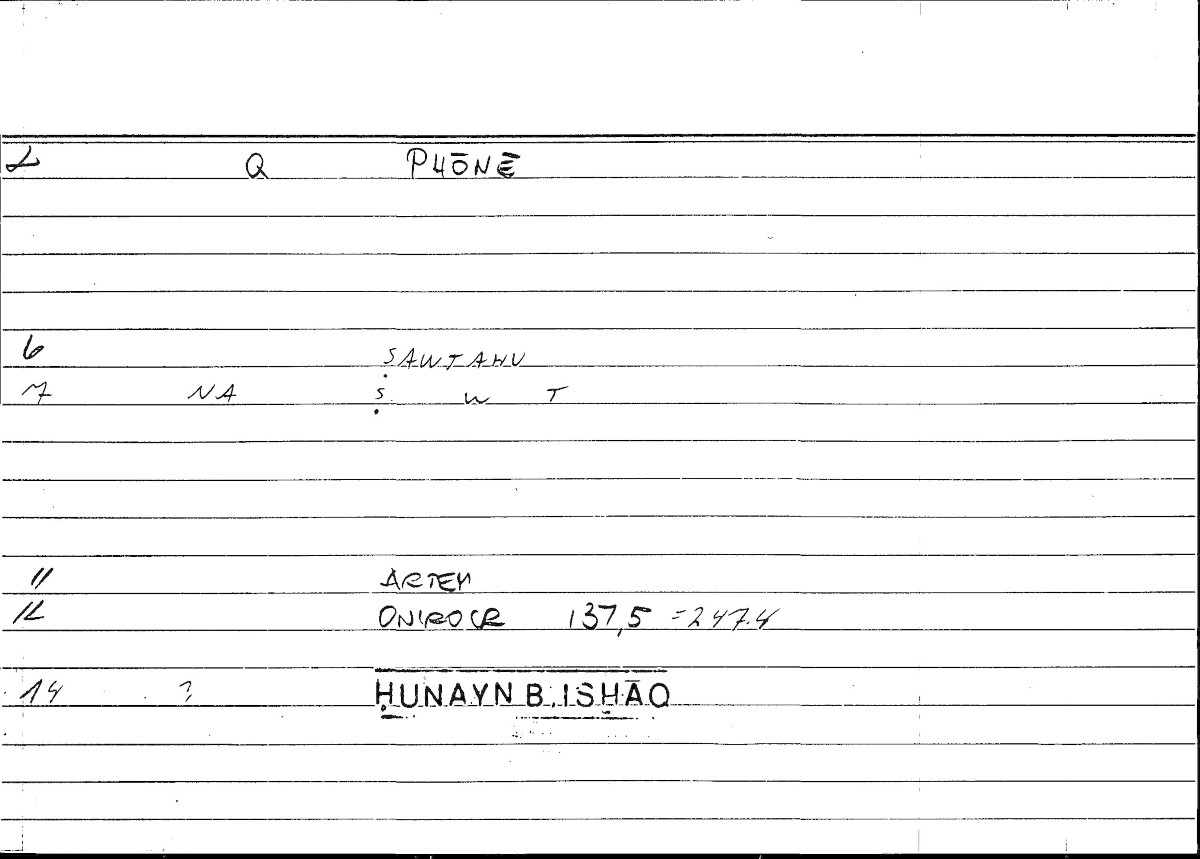 2 Q PHŌNĒ
6 ṢAWTAHU
7 NA Ṣ W T
11 ARTEM
12 ONIROCR 137,5 = 247.4
14 ? ḤUNAYN B. ISḤĀQ